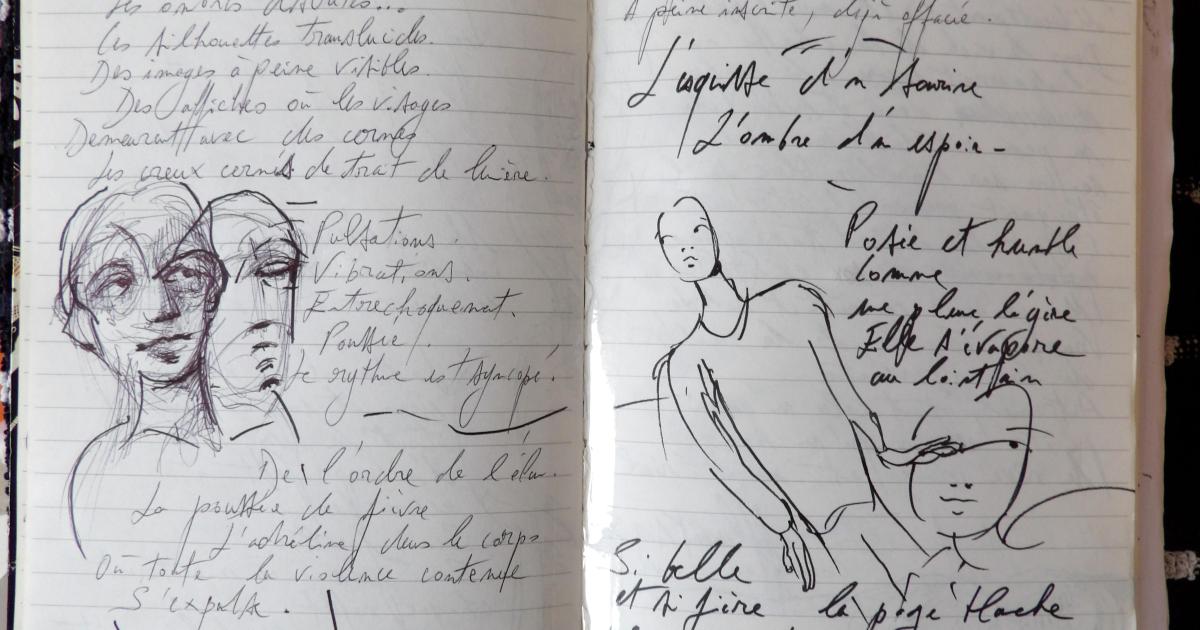 Les silhouettes translucides.
Des images à peine visibles.
Des affiches où les visages
Demeurent avec des cornes
Les creux cernés de trait de lumière.
Pulsations.
Vibrations.
Entrechoquement.
Poussée.
Le rythme est syncopé.
De l'ordre de l'élan.
La poussée de fièvre
L'adrénaline dans le corps
Où toute la violence contenue
S'expulse.
A peine inscrite, déjà effacée.
L'esquisse d'un sourire
L'ombre d'un espoir -
Posée et humble
comme
une plume légère
Elle s'évapore
au lointain
Si belle
et si fière la page blanche